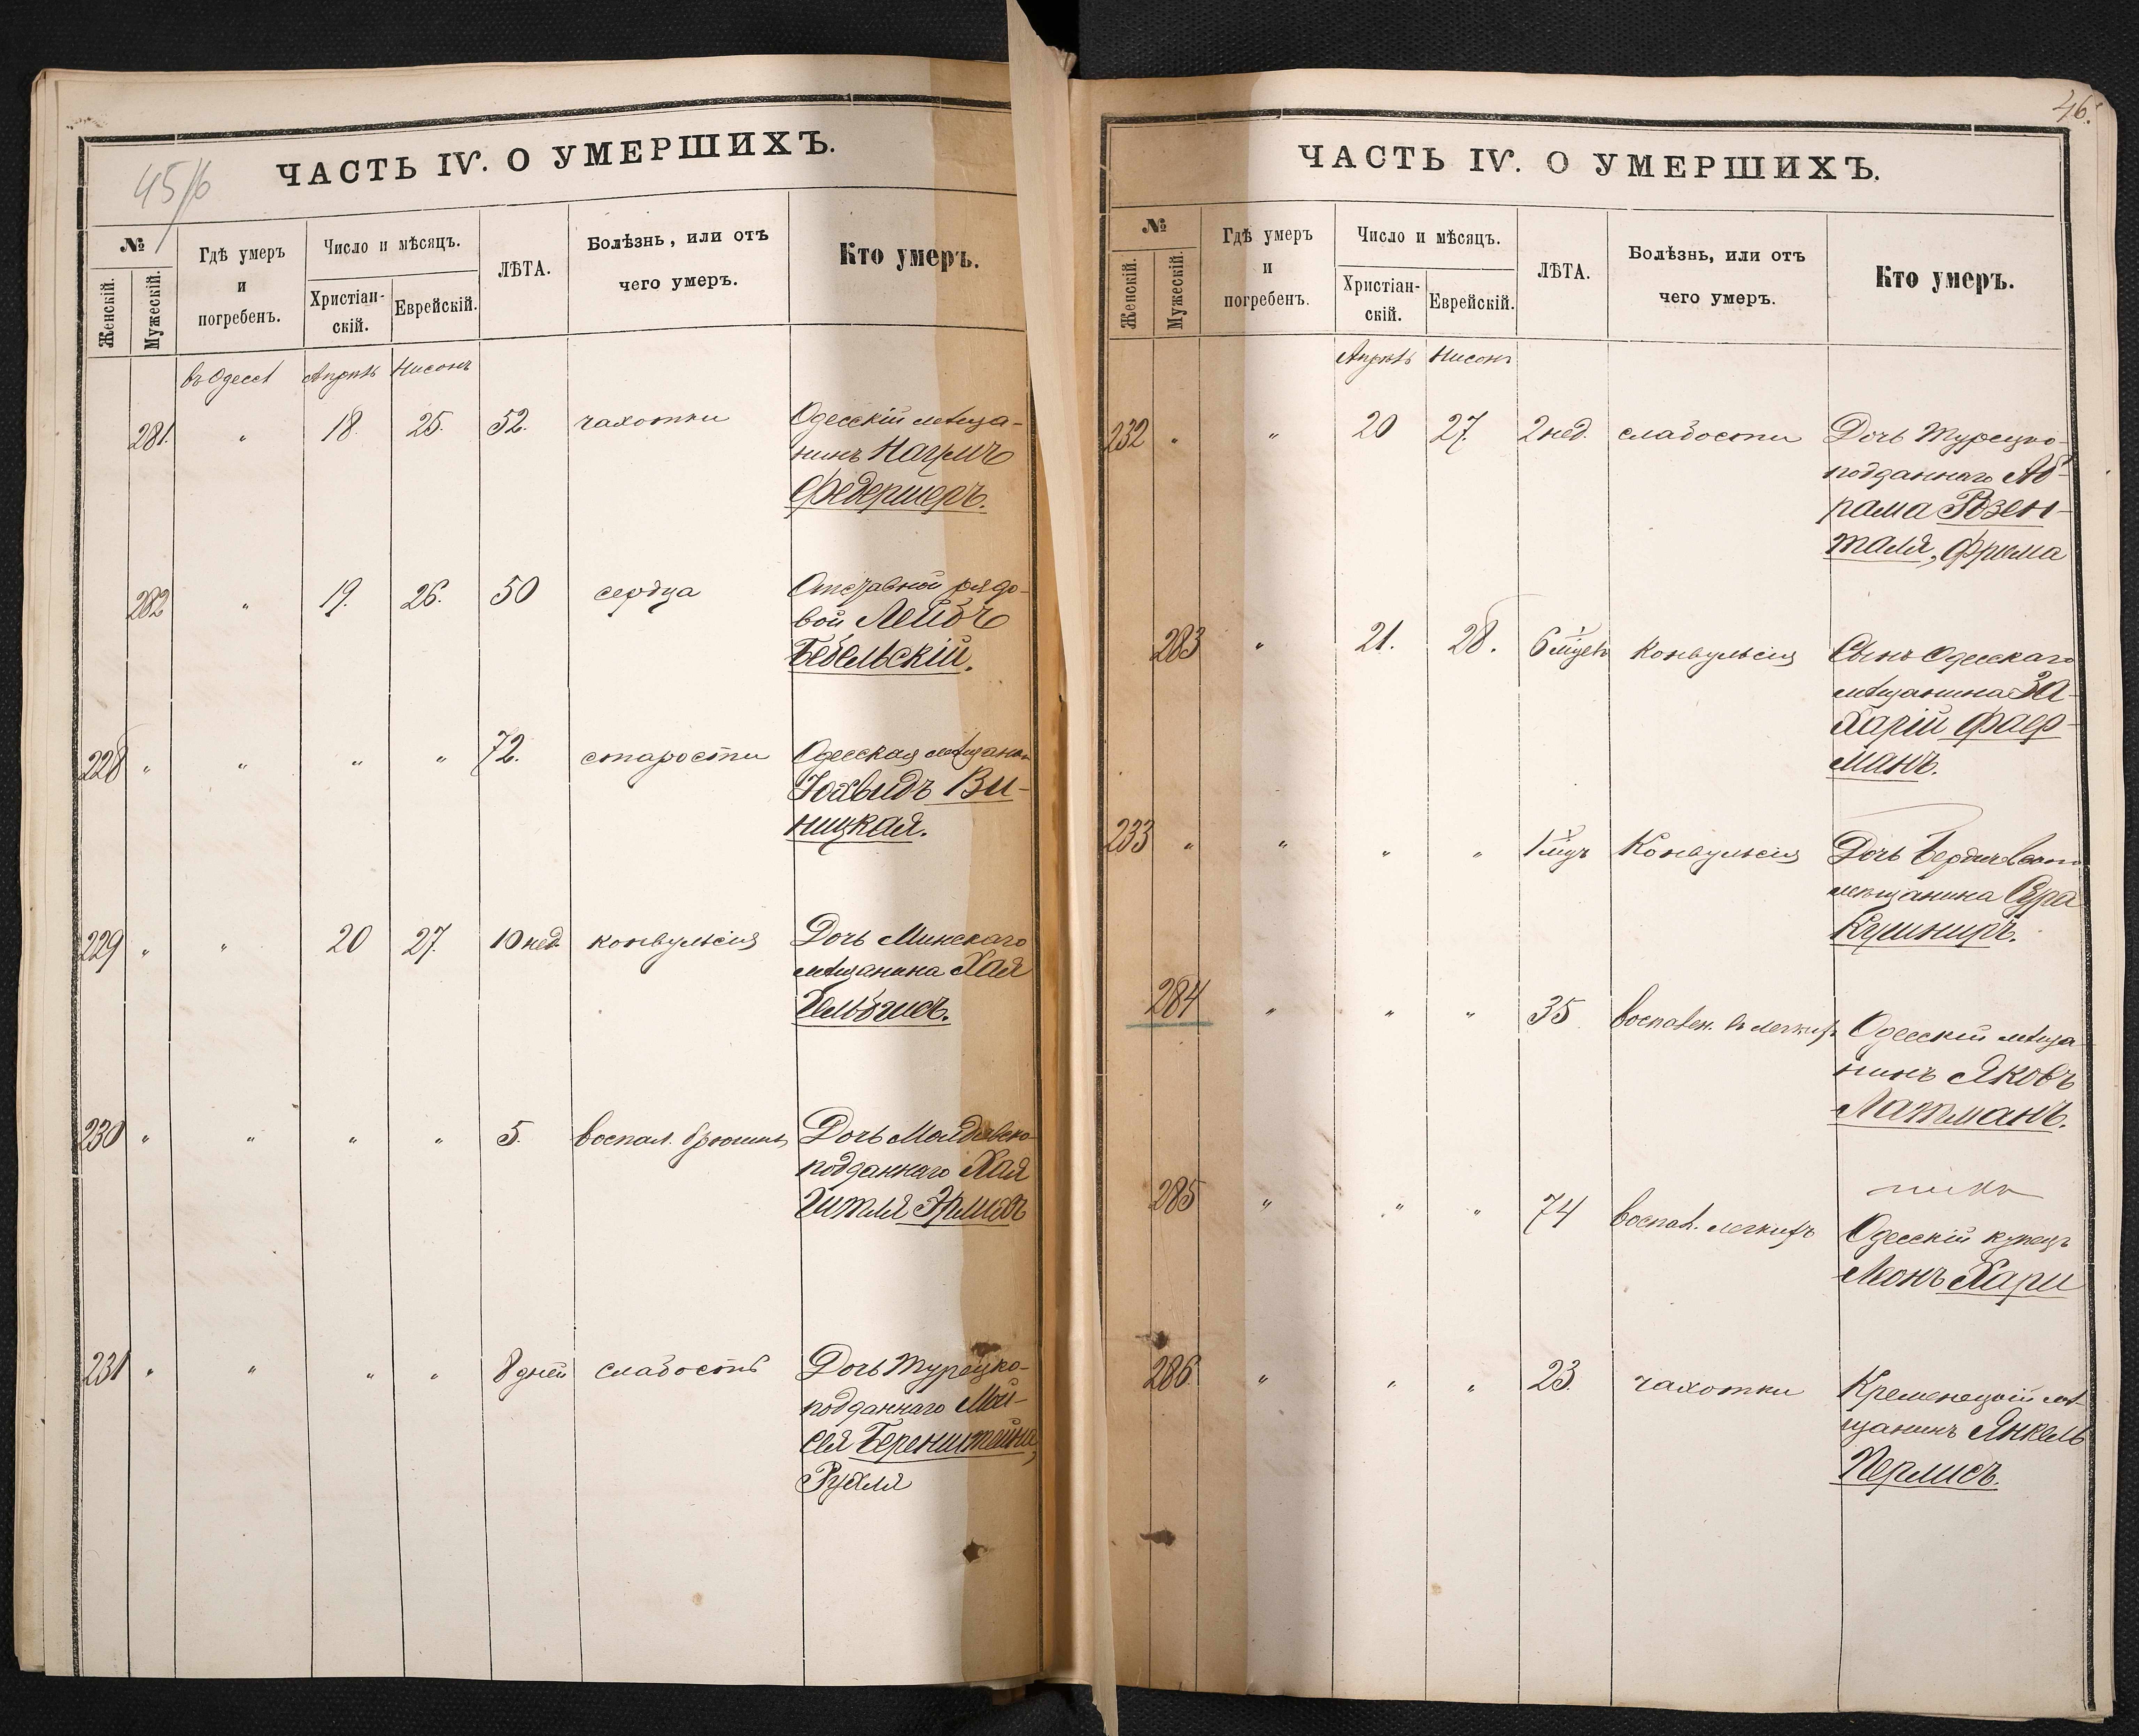 45/6
ЧАСТЬ IV. О УМЕРШИХЪ.
№
Женскій.
Мужескій.
Гдѣ умеръ
и
погребенъ.
Число и мѣсяцъ.
Христіан-
скій.
Еврейскій.
ЛѢТА.
Болѣзнь, или отъ
чего умеръ.
Кто умеръ.
въ Одессѣ Апрѣль Нисонъ
281. " 18. 25. 52. чахотки Одесскій мѣща-
нинъ
Федермеръ.
282 " 19. 26. 50 сердца Отставной рядо-
вой Лейбъ
Бебельскій.
228 " " " " 72. старости Одесская мѣщанка
Юхвидъ Ви-
ницкая.
229 " " 20 27. 10 нед. конвульсія Дочь Минскаго
мѣщанина Хая
230 " " " " 5. воспал. брюшины Дочь Молдавско-
подданнаго Хая
Гитля Эрлихъ
231 " " " " 8 дней слабость Дочь Турецко-
подданнаго Мой-
сея Беренштейна,
Рухля
46.
ЧАСТЬ IV. О УМЕРШИХЪ.
№
Женскій.
Мужескій.
Гдѣ умеръ
и
погребенъ.
Число и мѣсяцъ.
Христіан-
скій.
Еврейскій.
ЛѢТА.
Болѣзнь, или отъ
чего умеръ.
Кто умеръ.
Апрѣль Нисонъ
232 " " 20 27. 2 нед. слабости Дочь Турецко-
подданнаго Аб-
рама Розен-
таля, Фрима
283 " 21. 28. 6 мѣсц конвульсія Сынъ Одесскаго
мѣщанина За-
харій Фаер-
манъ.
233 " " " " 1 мсцъ Конвульсія Дочь Бердичевскаго
мѣщанина Сура
Кушниръ.
284 " " " 35 воспален. въ легкихъ Одесскій мѣща-
нинъ Яковъ
Латманъ.
285 " " " 74 воспал. легкихъ Одесскій купецъ
Леонъ Хари
286. " " " 23. чахотки Кременецкій мѣ-
щанинъ Янкель
Перлисъ.